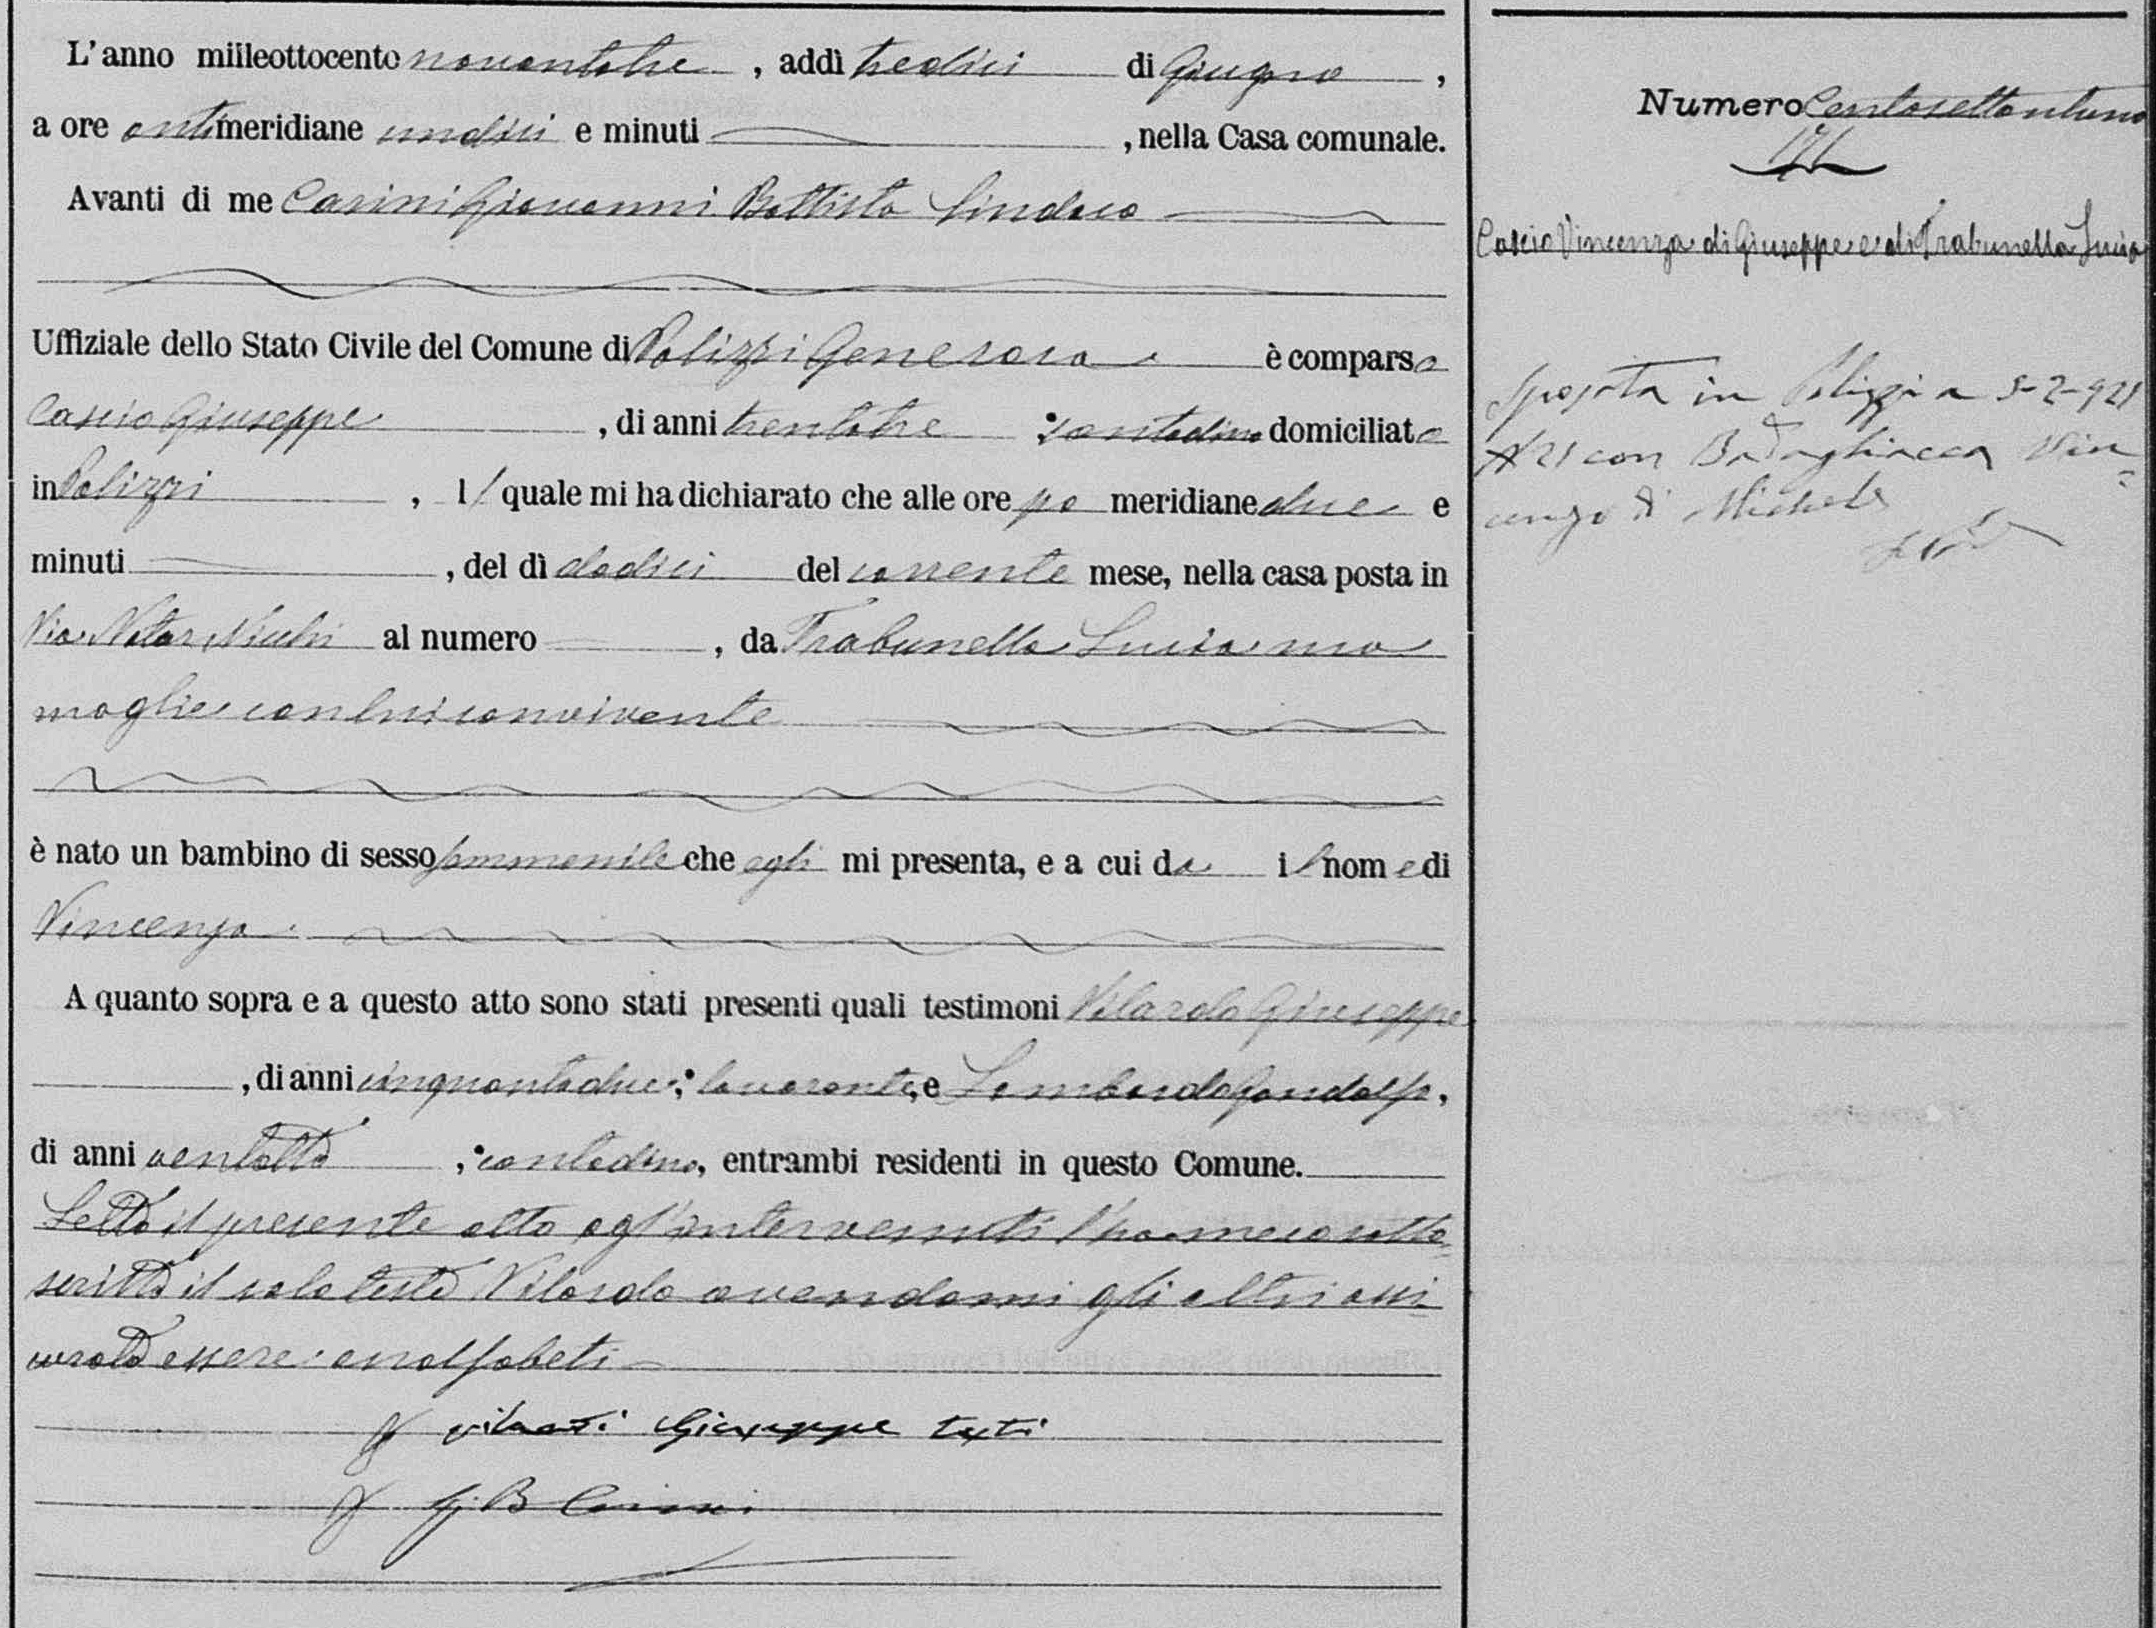 L'anno milleottocento novantatre, addì tredici di Giugno,
a ore antimeridiane undici e minuti, nella Casa comunale.
Avanti di me Carini Giovanni Battista Sindaco
Uffiziale dello Stato Civile del Comune di Polizzi Generosa è comparso
Cascio Giuseppe, di anni trentatre, contadino domiciliato
in Polizzi, il quale mi ha dichiarato che alle ore po meridiane due e
minuti, del dì dodici del corrente mese, nella casa posta in
Via Notar Nicchi al numero, da Trabunella Lucia sua
moglie con lui convivente
è nato un bambino di sesso femmenile che egli mi presenta, e a cui da il nome di
Vincenza
A quanto sopra e a questo atto sono stati presenti quali testimoni Vilardo Giuseppe
, di anni cinquantadue, lavorante, e Lombardo Gandolfo,
di anni ventotto, contadino, entrambi residenti in questo Comune.
Letto il presente atto agl'intervenuti l'ha meco sotto=
scritto il solo teste Vilardo avendomi gli altri assi
curato essere analfabeti
Giuseppe testi
G. B. Carini
Numero Centosettantuno
171
Cascio Vincenza di Giuseppe e di Trabunella Lucia
Sposata in Polizzi a 5-2-921
N 21 con Battagliacca Vin=
cenzo di Michele